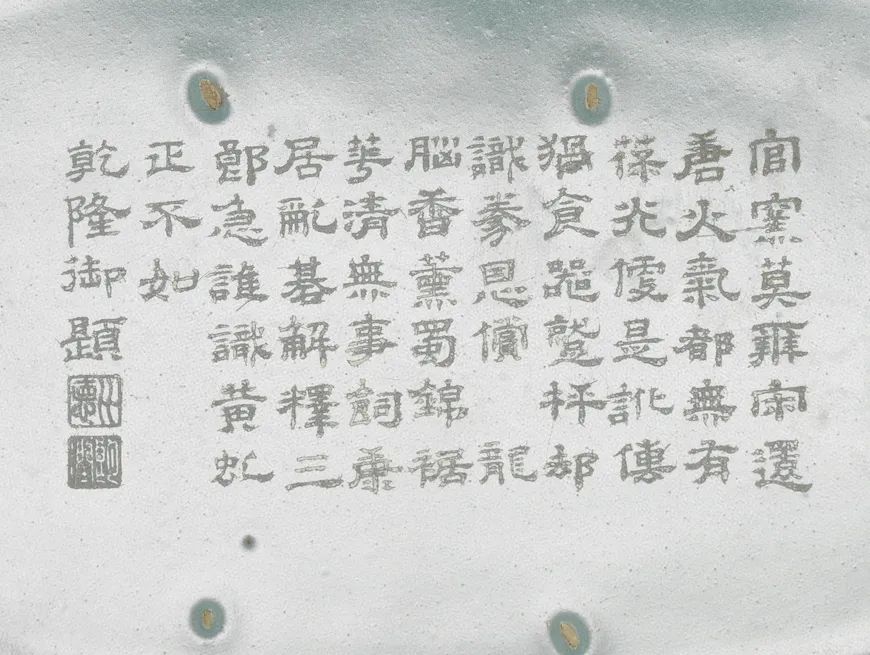 官窯莫辨宋還
唐火氣都無有
葆光便是訛傳
猧食器蹵枰却
識豢恩償 龍
腦香薰蜀錦裾
華清無事飼康
居亂碁解釋三
郎急誰識黃虬
正不如
乾隆御題